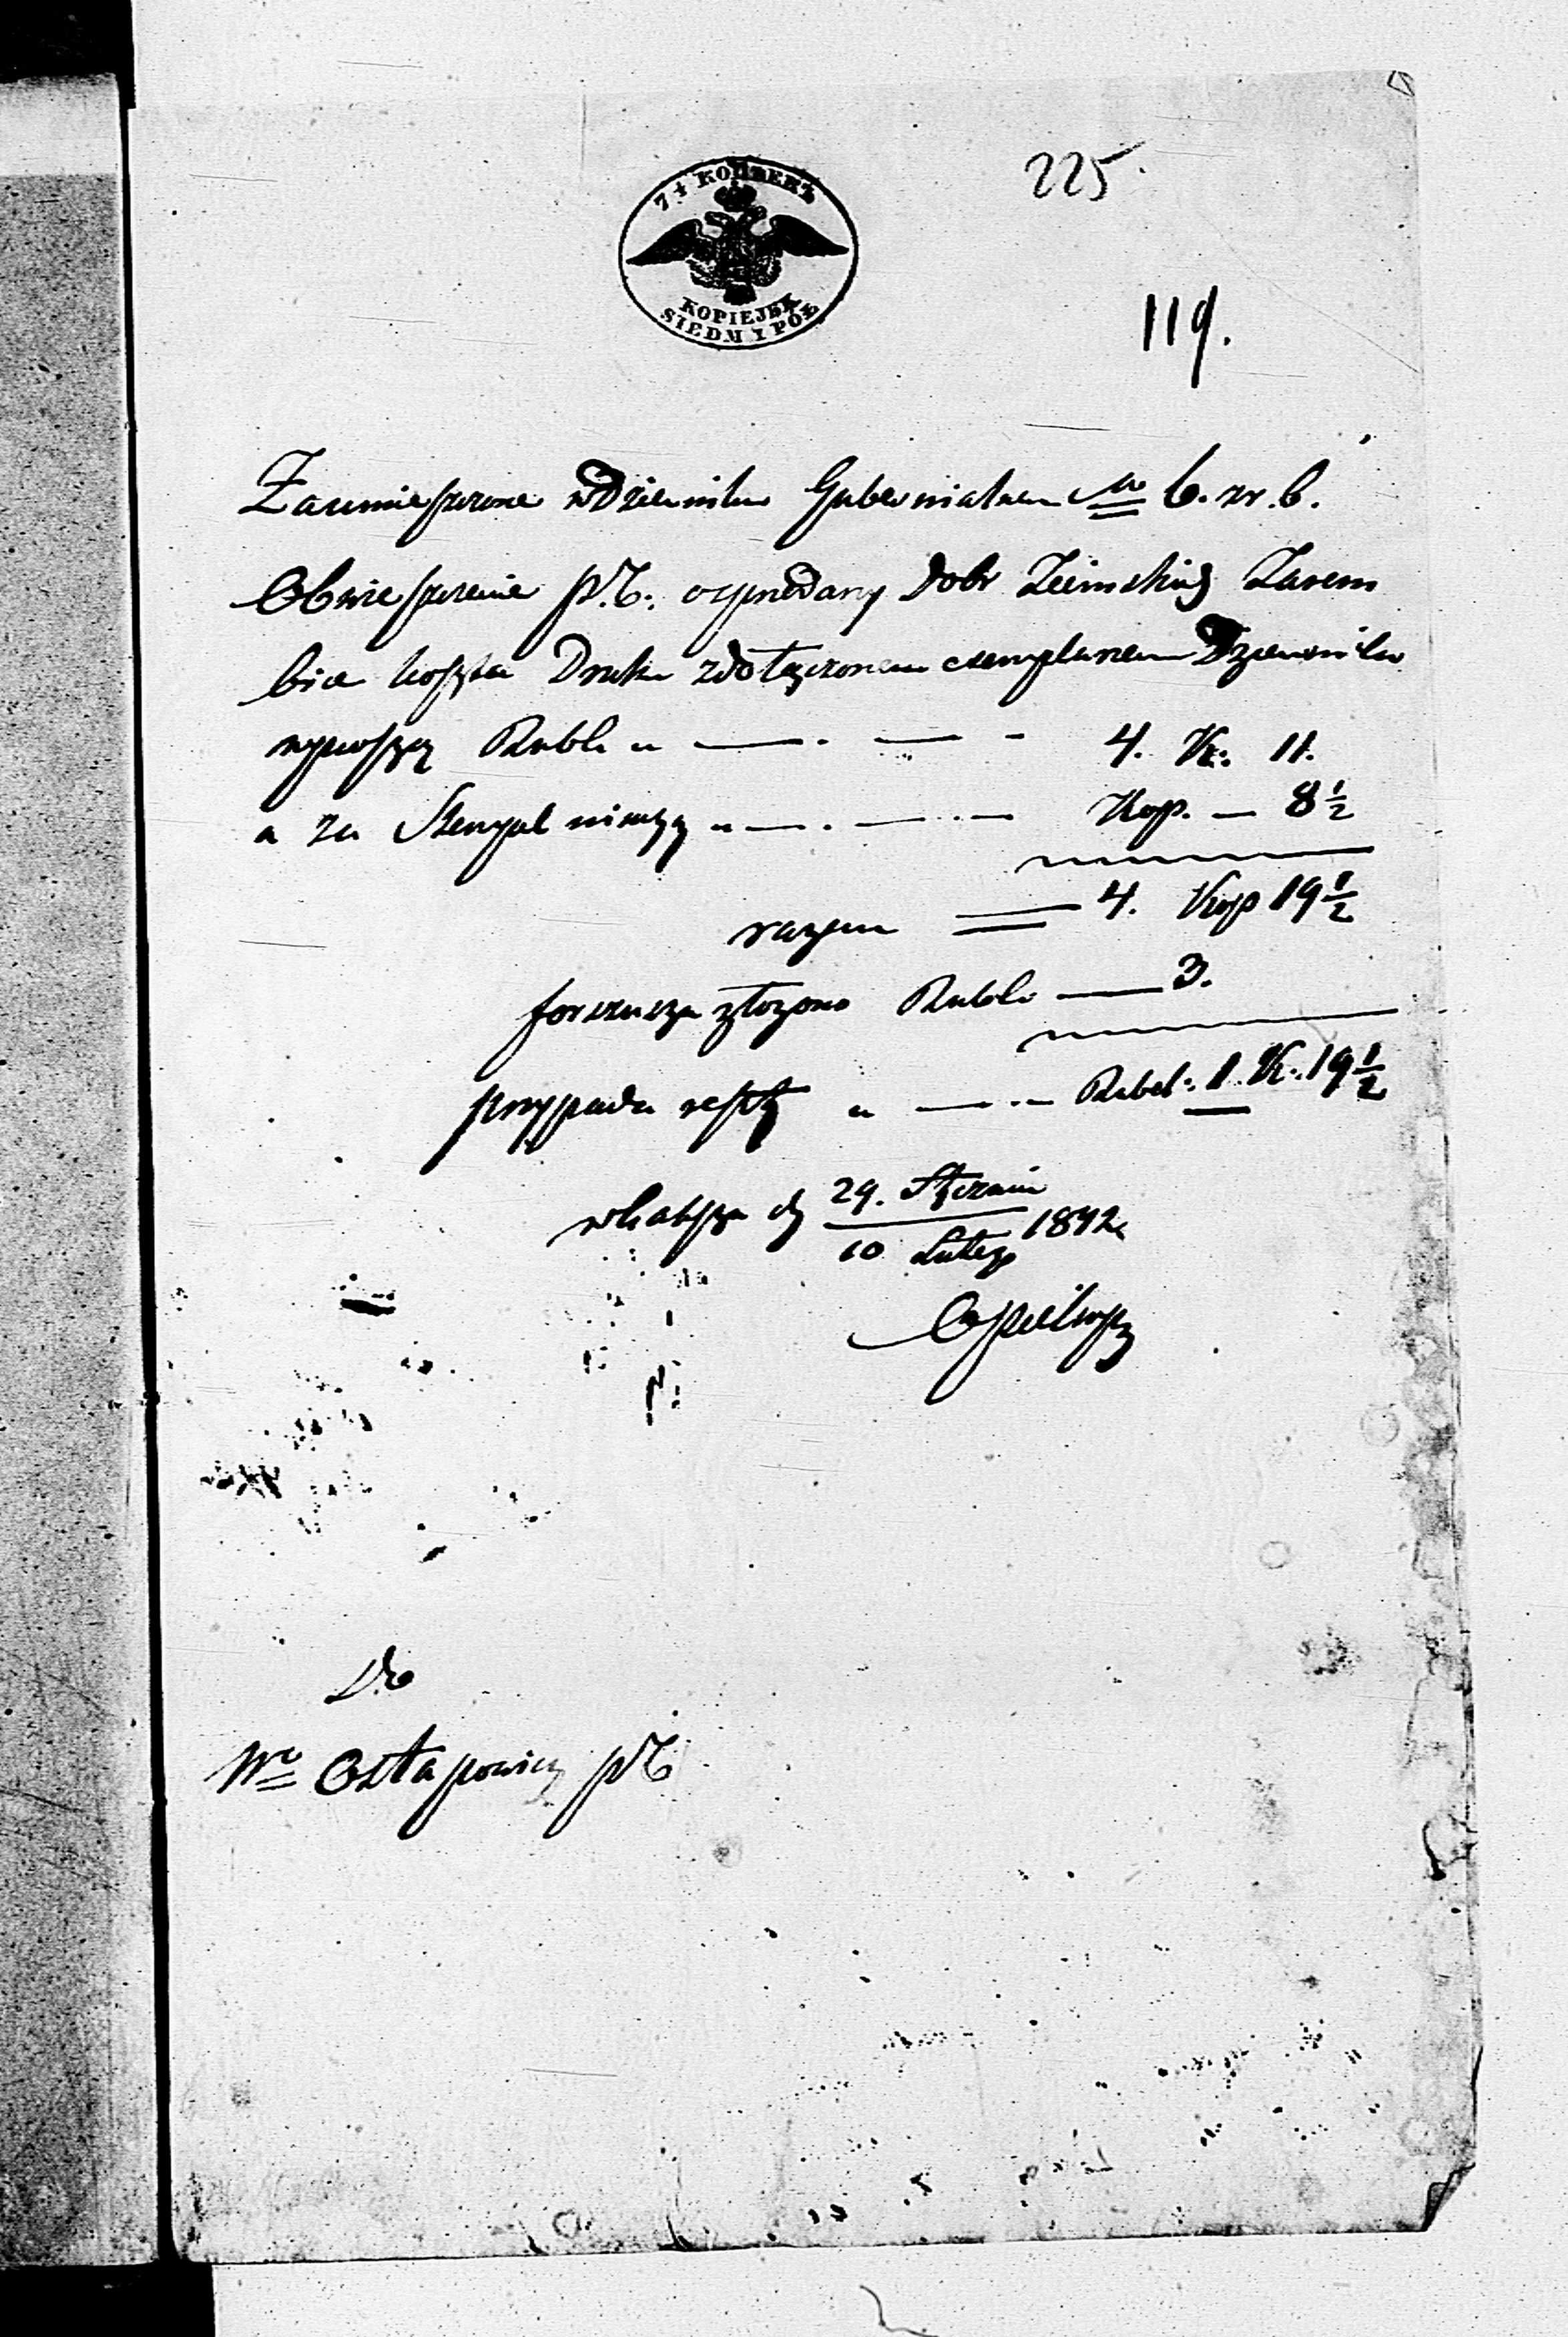 225.
7½ КОПѢЕКЪ
KOPIEJEK
SIEDM I PÓŁ
119.
Za umieszczone w Dzienniku Gubernialnem No 6. nr. b.
Obwieszczenie p. T. o sprzedaży Dobr Ziemskich Zarem
bia koszta Druku z dołączonem exemplarzem Dziennika
wynoszą Rubli „ — . — - 4. K: 11.
a za Stempel niniejszy „ — . — . — Kop. — 8½
razem = 4. Kop 19½
forszusza złożono Rubli — 3.
przypada reszty „ — . — Rubel: 1. K: 19½
w Kaliszu d 29. Stycznia
10 Lutego 1842
Do
Wo Ostapowicz p T